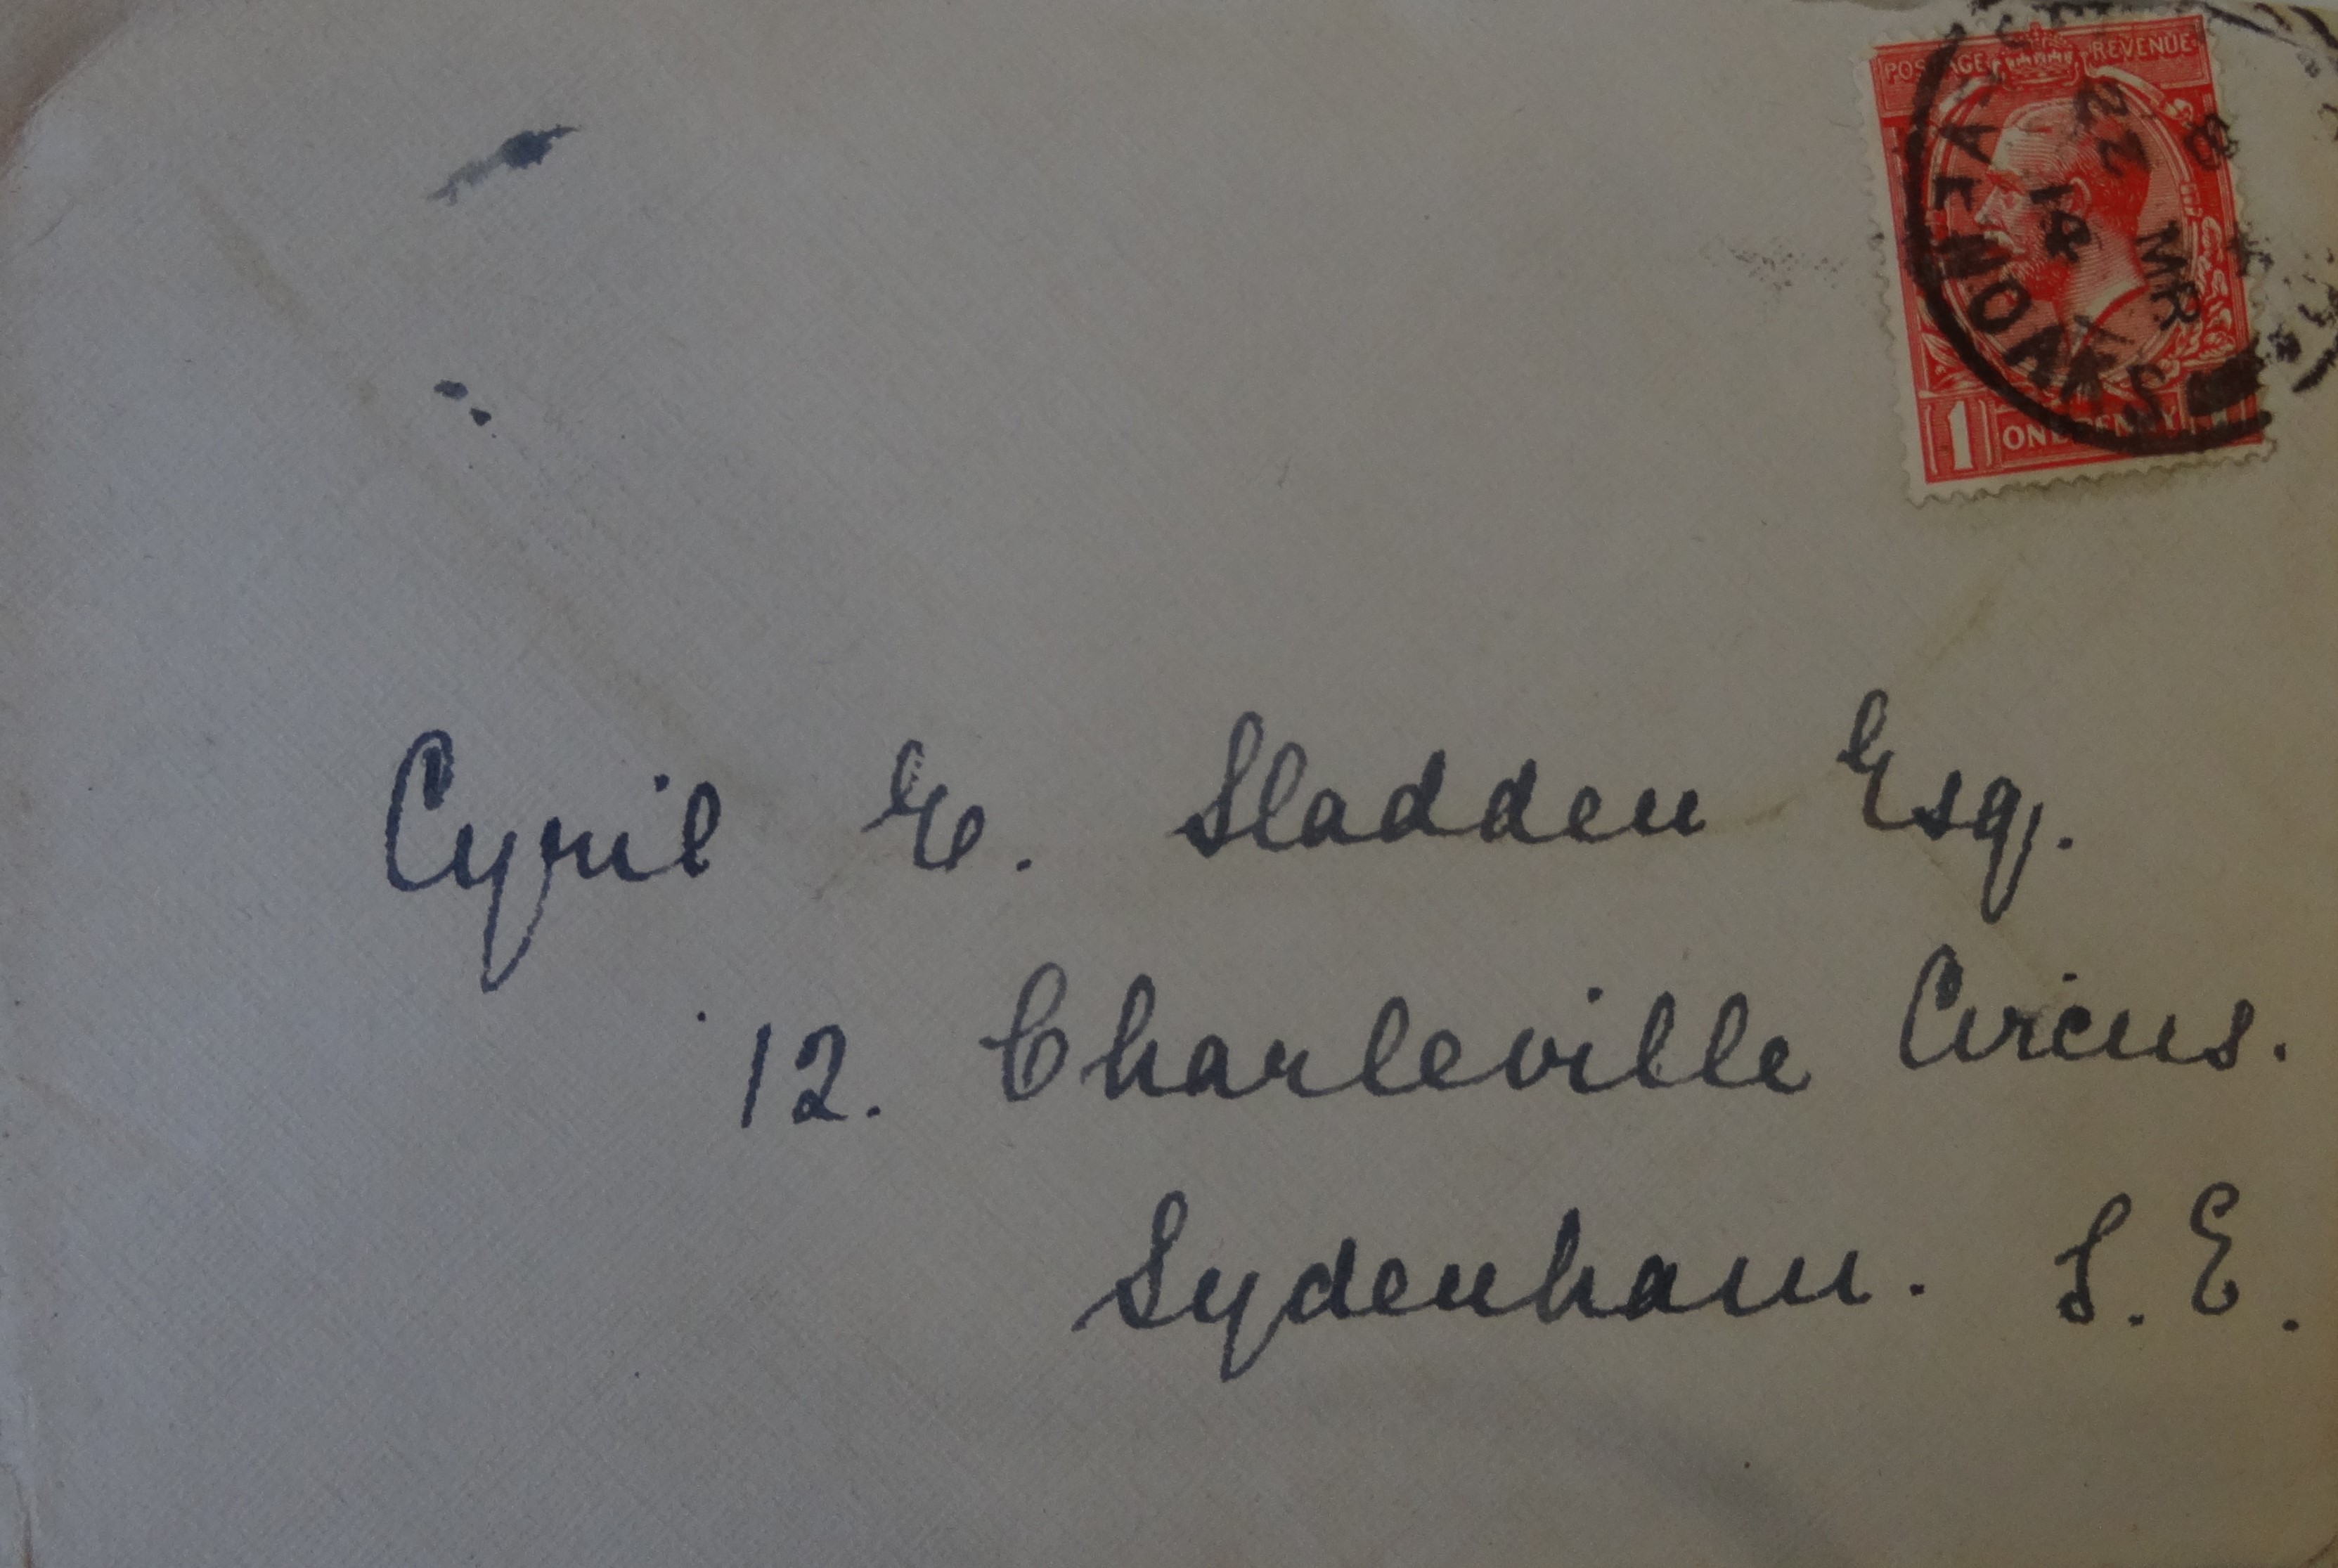 POSTAGE REVENUE
SEVENOAKS
22 MR
14
1 ONE PENNY 1
Cyril E. Sladden Esq.
12. Charleville Circus.
Sydenham. S.E.